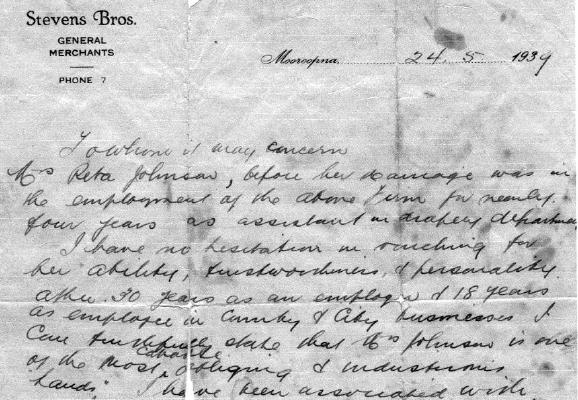 Stevens Bros.
GENERAL
MERCHANTS
PHONE 7
Mooroopna, 24. 5 1939
To whom it may concern
Mrs Reta Johnson, before her marriage was in
the employment of the above Firm for nearly
four years as assistant in drapery department
I have no hesitation in vouching for
her ability, trustworthiness, & personality.
After 30 years as an employer & 18 years
as employee in Country & City businesses I
can truthfully state that Mrs Johnson is one
of the most capable obliging & industrious
hands I have been associated with.